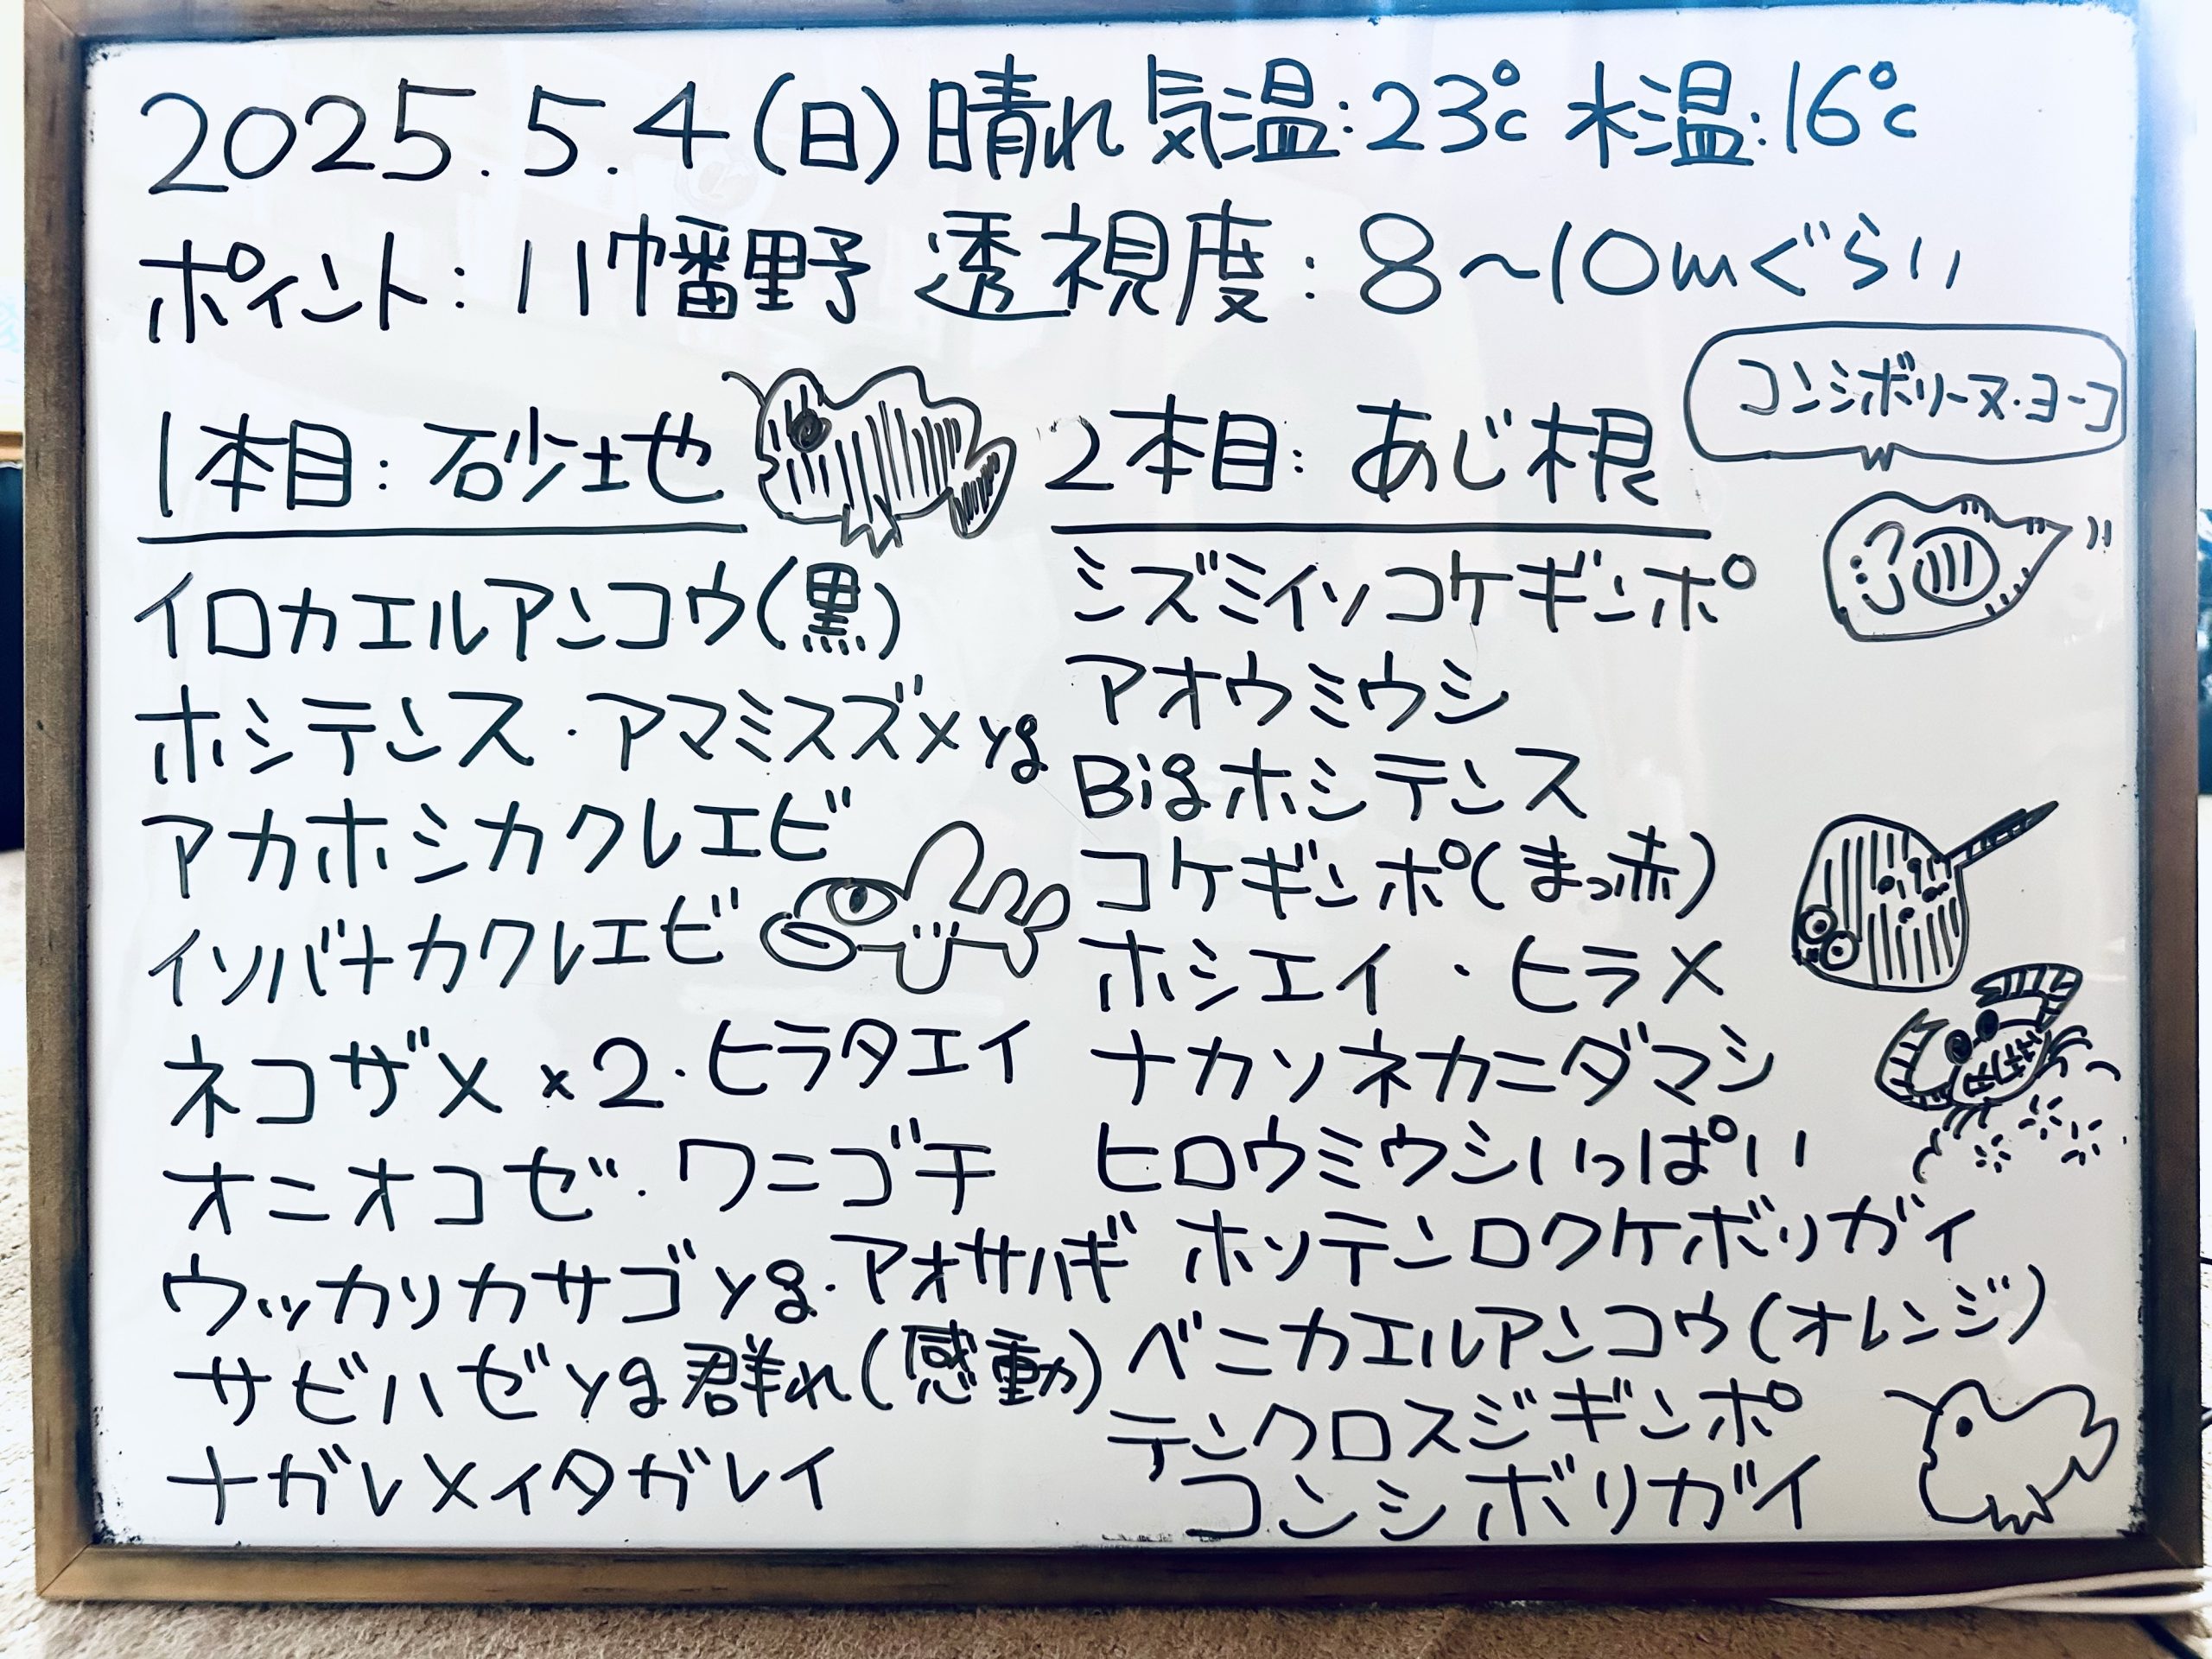 2025.5.4(日)晴れ 気温:23℃ 水温:16℃
ポイント:八幡野 透視度:8〜10mぐらい
1本目:砂地
イロカエルアンコウ(黒)
ホシテンス・アマミスズメyg
アカホシカクレエビ
イソバナカクレエビ
ネコザメ×2・ヒラタエイ
オニオコゼ・ワニゴチ
ウッカリカサゴyg・アオサハギ
サビハゼyg群れ(感動)
ナガレメイタガレイ
2本目:あじ根
コンシボリーヌ・ヨーコ
シズミイソコケギンポ
アオウミウシ
Bigホシテンス
コケギンポ(まっ赤)
ホシエイ・ヒラメ
ナカソネカニダマシ
ヒロウミウシいっぱい
ホソテンロクケボリガイ
ベニカエルアンコウ(オレンジ)
テンクロスジギンポ
コンシボリガイ